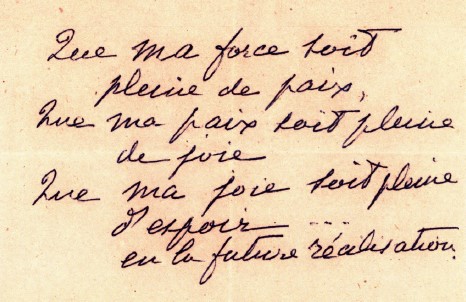 Que ma force soit
pleine de paix,
Que ma paix soit pleine
de joie
Que ma joie soit pleine
d'espoir ....
en la future réalisation.